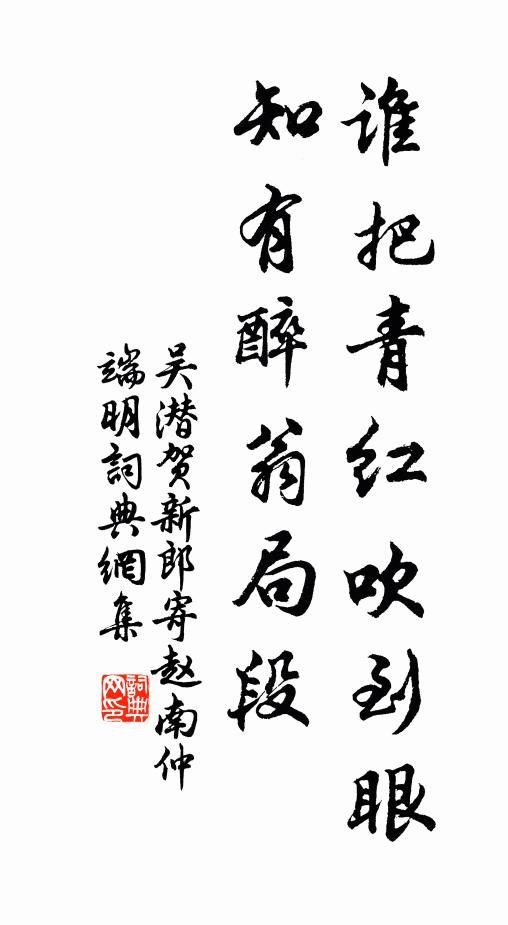 谁把青红吹到眼
知有醉翁局段
吴潜贺新郎寄赵南仲
端明詞典網集
詞典网印